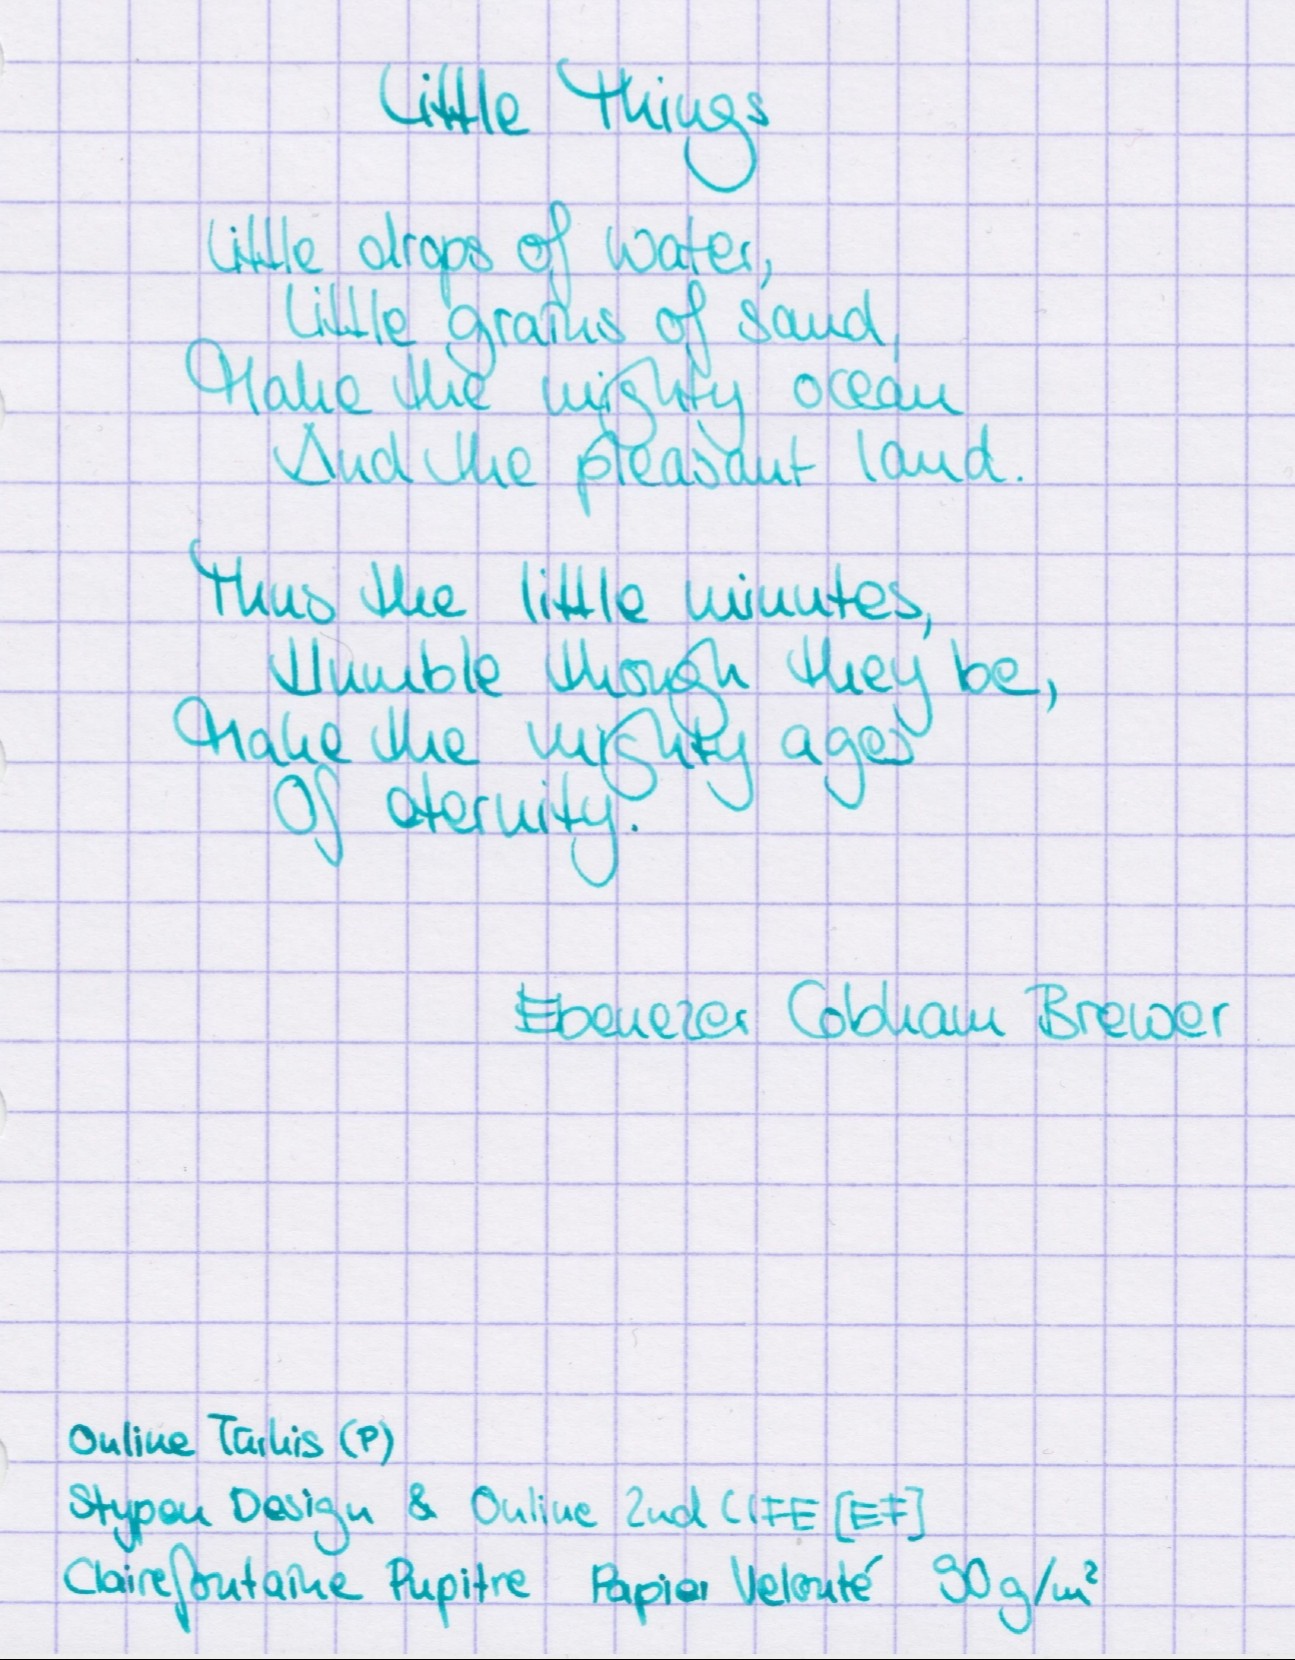 Little Things
Little drops of water,
Little grains of sand,
Make the mighty ocean
And the pleasant land.
Thus the little minutes,
Humble though they be,
Make the mighty ages
Of eternity.
Ebenezer Cobham Brewer
Online Türkis (P)
Stypen Design & Online 2nd LIFE [EF]
Clairefontaine Pupitre Papier Velouté 90g/m²